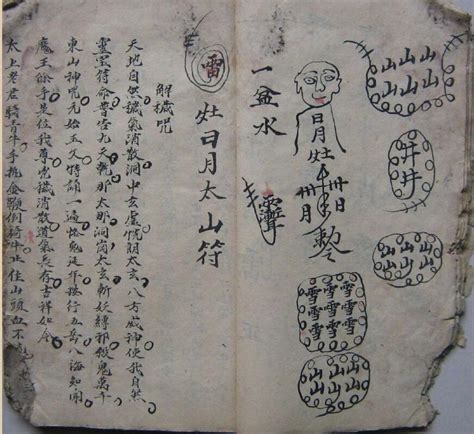 山山山
山山山
井井
山山山
山山
日月灶
卅日
卅月
雪雪雪
雪雪雪
雪雪雪
山山山
山山山
一盆水
雷
灶日月太山符
解穢咒
天地自然穢氣消散洞中玄虛恍朗太玄八方威神使我自然
靈宝符命普告九天乾那太那洞崗太玄斬妖縛邪殺鬼萬千
東山神咒元始玉文特誦一遍怯鬼延年按行五岳八海知聞
魔王餘手是位我尊穢消散道氣長存吉祥如令
太上老君騎青牛手挑金鞭倒騎牛止住山頭血不